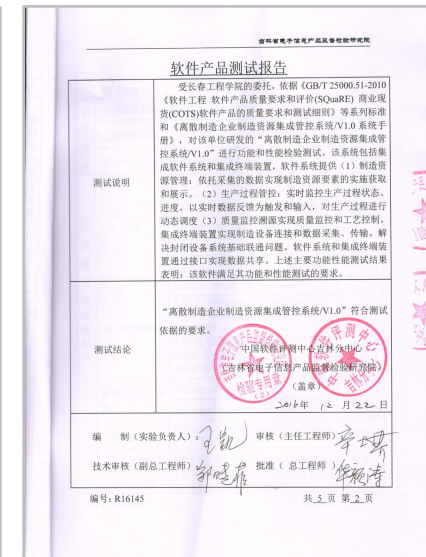 吉林省电子信息产品监督检验研究院
软件产品测试报告
测试说明
受长春工程学院的委托，依据《GB/T 25000.51-2010
《软件工程 软件产品质量要求和评价(SQuaRE) 商业现
货(COTS)软件产品的质量要求和测试细则》等系列标准
和《离散制造企业制造资源集成管控系统/V1.0 系统手
册》，对该单位研发的“离散制造企业制造资源集成管
控系统/V1.0”进行功能和性能检验测试。该系统包括集
成软件系统和集成终端装置，软件系统提供（1）制造资
源管理：依托采集的数据实现制造资源要素的实施获取
和展示。（2）生产过程管控：实时监控生产过程状态、
进度，以实时数据反馈为触发和输入，对生产过程进行
动态调度（3）质量监控溯源实现质量监控和工艺控制。
集成终端装置实现制造设备连接和数据采集、传输，解
决封闭设备系统基础联通问题，软件系统和集成终端装
置通过接口实现数据共享。上述主要功能性能测试结果
表明：该软件满足其功能和性能测试的要求。
测试结论
“离散制造企业制造资源集成管控系统/V1.0”符合测试
依据的要求。
中国软件评测中心吉林分中心
（吉林省电子信息产品监督检验研究院）
（盖章）
检验专用章
（2）
2016年 12 月 22 日
编 制（实验负责人）：王凯 审核（主任工程师）
技术审核（副总工程师） 批准（ 总工程师 ）
编号：R16145 共 5 页 第 2 页